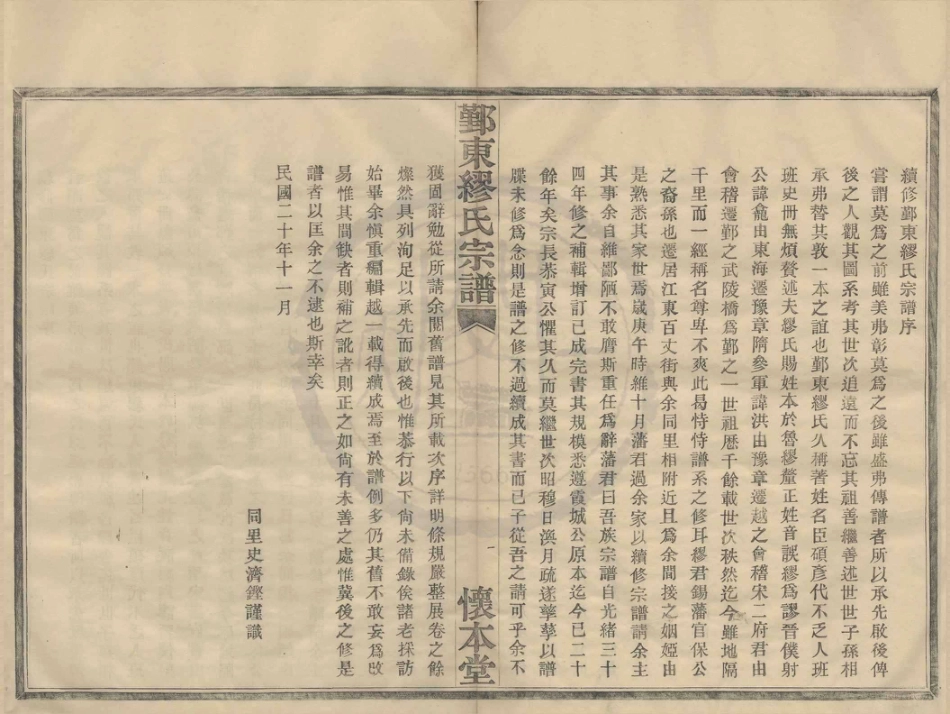 續修鄞東繆氏宗譜序
嘗謂莫爲之前雖美弗彰莫爲之後雖盛弗傳譜者所以承先啟後俾
後之人觀其圖系考其世次追遠而不忘其祖善繼善述世世子孫相
承弗替其敦一本之誼也鄞東繆氏久稱著姓名臣碩彥代不乏人班
班史冊無煩贅述夫繆氏賜姓本於魯繆釐正姓音誤繆爲謬晉僕射
公諱龕由東海遷豫章隋參軍諱洪由豫章遷越之會稽宋二府君由
會稽遷鄞之武陵橋爲鄞之一世祖歷千餘載世次秩然迄今雖地隔
千里而一經稱名尊卑不爽此曷恃恃譜系之修耳繆君錫藩官保公
之裔孫也遷居江東百丈街與余同里相附近且爲余間接之姻婭由
是熟悉其家世焉歲庚午時維十月藩君過余家以續修宗譜請余主
其事余自維鄙陋不敢膺斯重任爲辭藩君曰吾族宗譜自光緒三十
四年修之補輯增訂已成完書其規模悉遵霞城公原本迄今已二十
餘年矣宗長恭寅公懼其久而莫繼世次昭穆日渙月疏遂孳孳以譜
牒未修爲念則是譜之修不過續成其書而已子從吾之請可乎余不
鄞東繆氏宗譜
一
懷本堂
獲固辭勉從所請余閱舊譜見其所載次序詳明條規嚴整展卷之餘
燦然具列洵足以承先而啟後也惟恭行以下尚未備錄俟諸老採訪
始畢余慎重編輯越一載得續成焉至於譜例多仍其舊不敢妄爲改
易惟其間缺者則補之訛者則正之如尚有未善之處惟冀後之修是
譜者以匡余之不逮也斯幸矣
同里史濟鏗謹識
民國二十年十一月